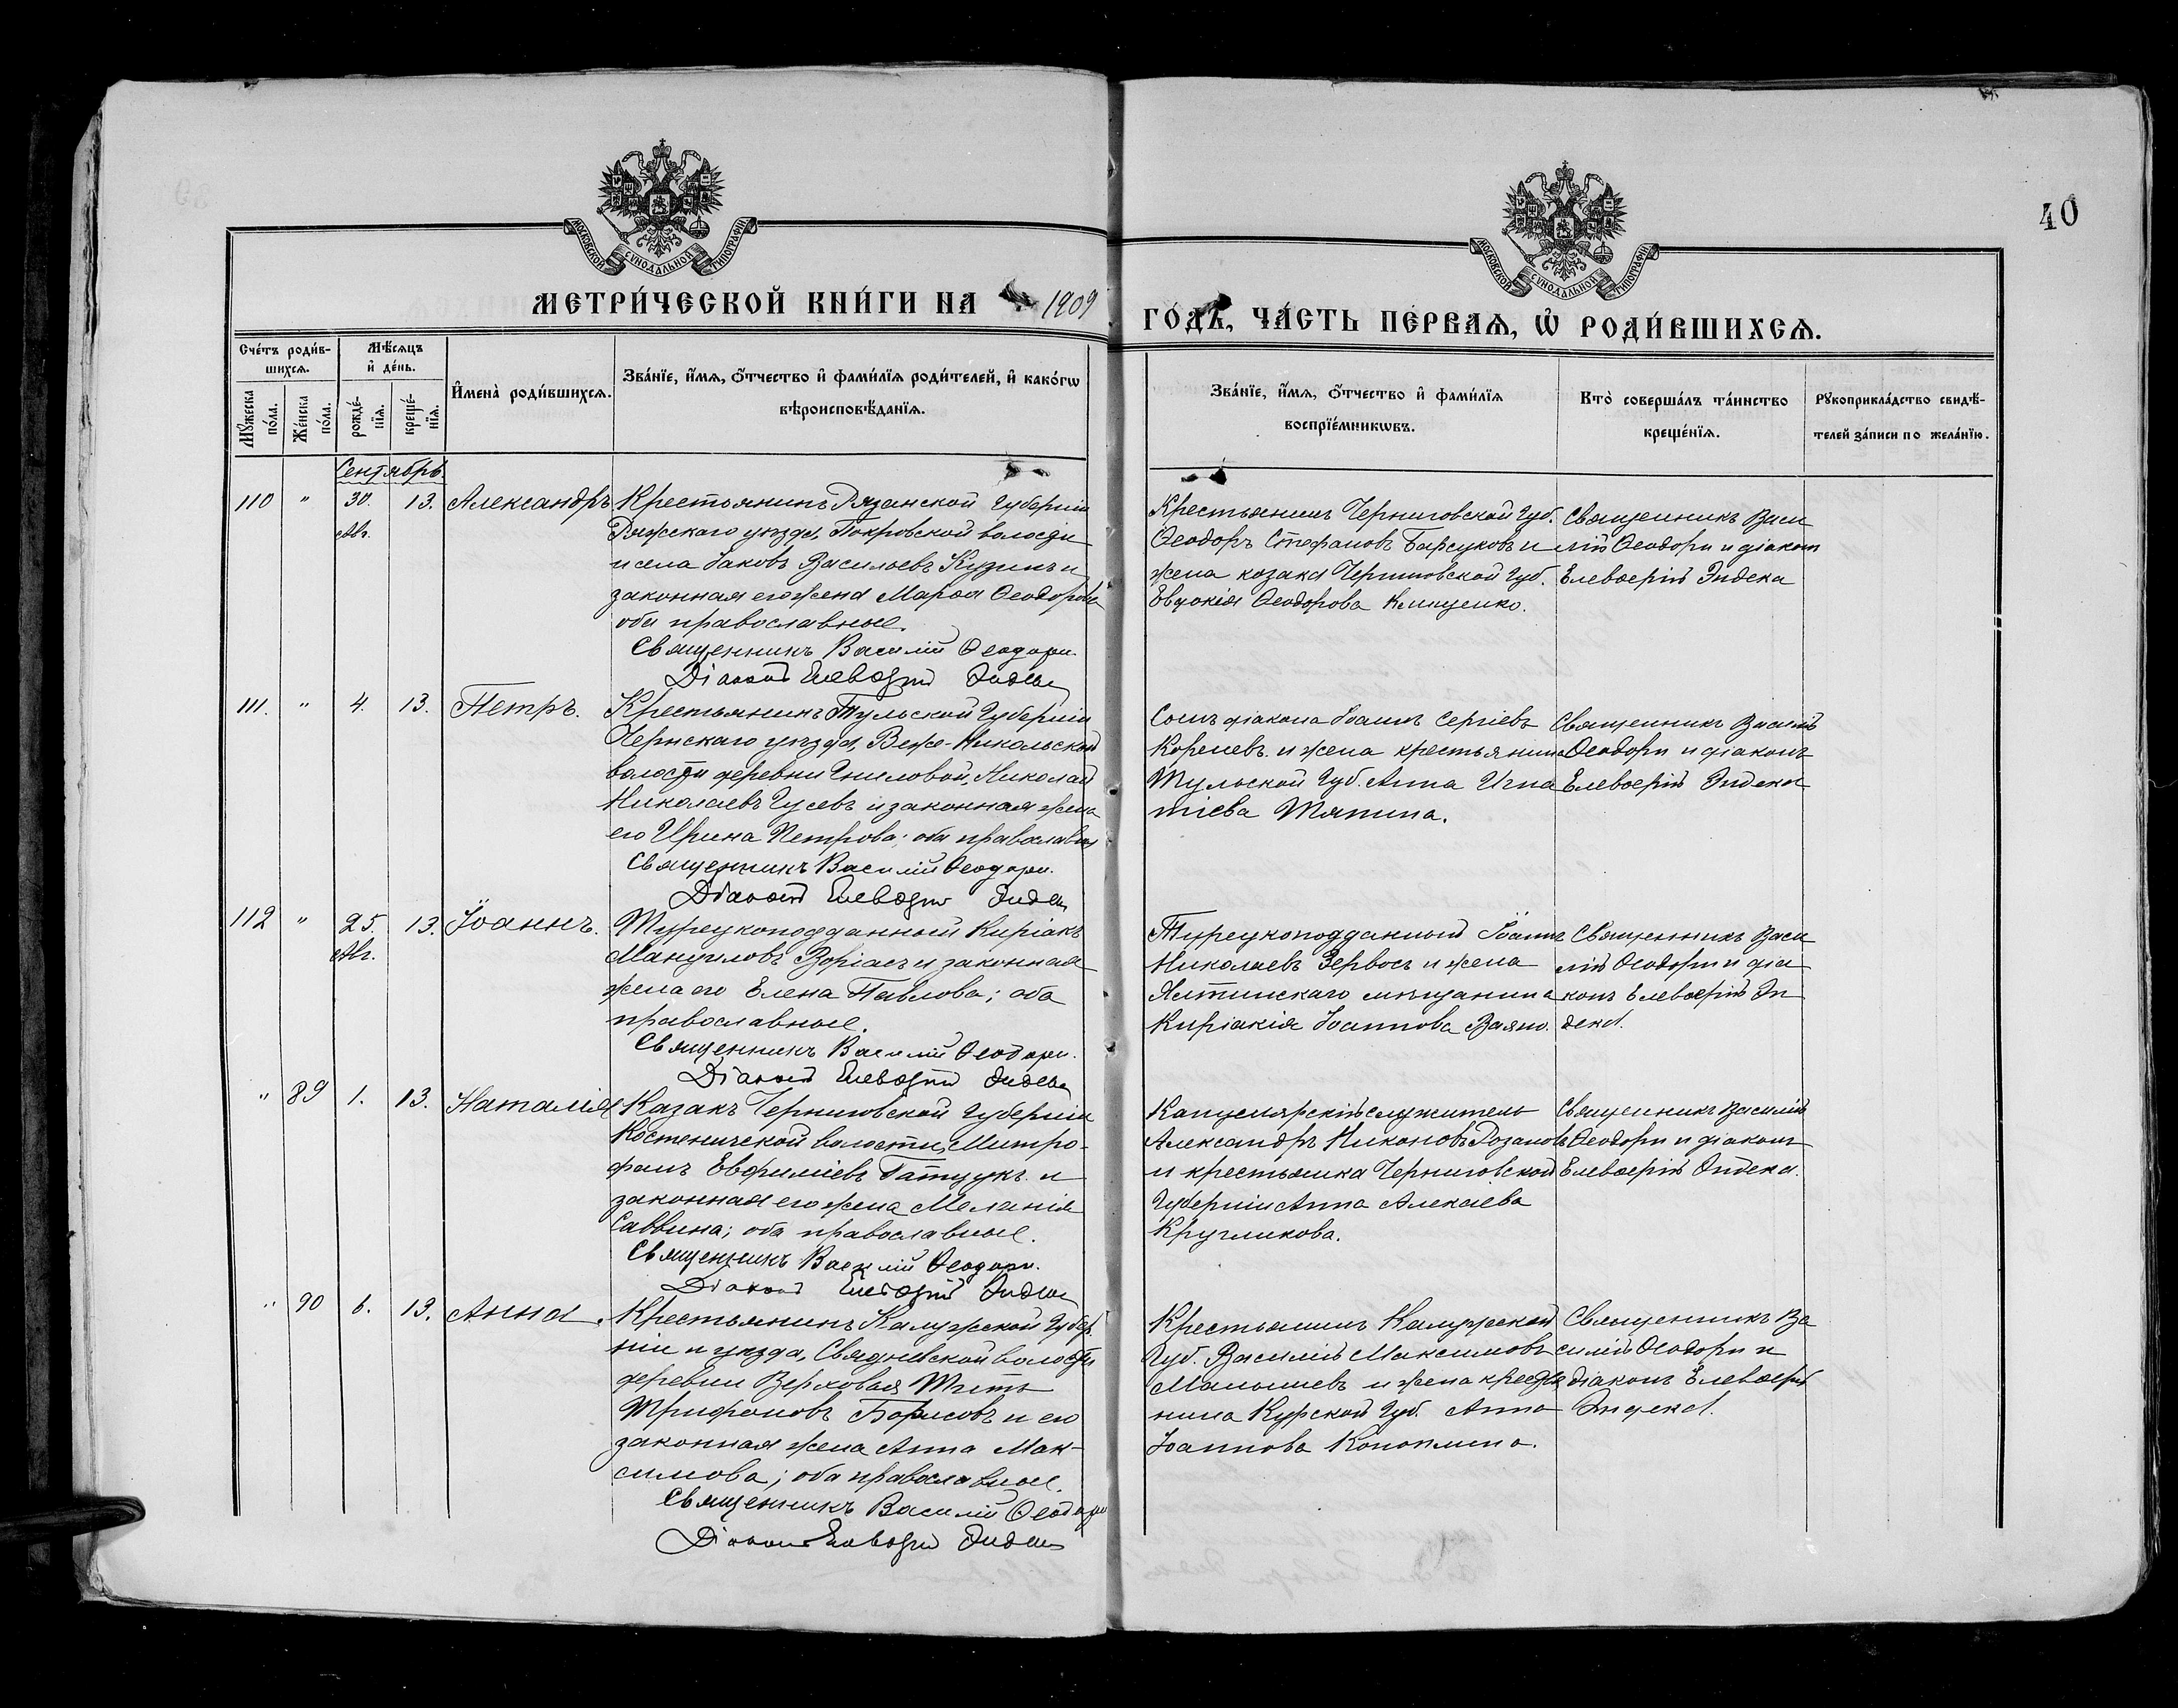 40
МОСКОВСКОЙ СѴНОДАЛЬНОЙ ТИПОГРАФІИ
МОСКОВСКОЙ СѴНОДАЛЬНОЙ ТИПОГРАФІИ
МЕТРИ́ЧЕСКОЙ КНИ́ГИ НА 1909 ГО́ДЪ, ЧА́СТЬ ПЕ́РВАѦ, Ѡ҆ РОДИ́ВШИХСѦ.
Сче́тъ роди́в-
шихсѧ.
Мꙋ́жеска по́ла.
Же́нска по́ла.
Мѣ́сѧцъ
и҆ де́нь.
рожде́-
нїѧ.
креще́-
нїѧ.
И҆мена̀ роди́вшихсѧ.
Зва́нїе, и҆́мѧ, ѻ҆́тчество и҆ фами́лїѧ роди́телей, и҆ како́гѡ
вѣроисповѣ́данїѧ.
Зва́нїе, и҆́мѧ, ѻ҆́тчество и҆ фами́лїѧ
воспрїе́мникѡвъ.
Кто̀ соверша́лъ та́инство
креще́нїѧ.
Рꙋкоприкла́дство свидѣ́-
телей за́писи по жела́нїю.
Сентябрь
110 " 30. Авг. 13. Александръ
Крестьянинъ Рязанской Губерніи
Ряжскаго уѣзда, Покровской волости
и села Іаковъ Васильевъ Кузинъ и
законная его жена Марѳа Ѳеодорова
оба православные.
Священникъ Василій Ѳеодори.
Діаконъ Елевѳерій Эндека
Крестьянинъ Черниговской Губ.
Ѳеодоръ Стефановъ Барсуковъ и
жена козака Черниговской Губ.
Евдокія Ѳеодорова Клищенко.
Священникъ Васи
лій Ѳеодори и діаконъ
Елевѳерій Эндека
111. " 4. 13. Петръ.
Крестьянинъ Тульской Губерніи
Чернскаго уѣзда, Веже-Никольской
волости деревни Гниловой, Николай
Николаевъ Гусевъ и законная жена
его Ирина Петрова; оба православные
Священникъ Василій Ѳеодори.
Діаконъ Елевѳерій Эндека
Сынъ діакона Іоаннъ Сергіевъ
Кореневъ и жена крестьянина
Тульской Губ. Анна Игна
тіева Тяпина.
Священникъ Василій
Ѳеодори и діаконъ
Елевѳерій Эндека
112 " 25. Авг. 13. Іоаннъ.
Турецкоподданный Киріакъ
Мануиловъ Воріасъ и законная
жена его Елена Павлова; оба
православные.
Священникъ Василій Ѳеодори.
Діаконъ Елевѳерій Эндека
Турецкоподданный Іоаннъ
Николаевъ Зервосъ и жена
Ялтинскаго мѣщанина
Киріакія Іоаннова
Священникъ Васи
лій Ѳеодори и діа
конъ Елевѳерій Эн
дека.
" 89 1. 13. Наталія
Казакъ Черниговской Губерніи
Костеничской волости, Митро-
фанъ Евфиміевъ Гатцукъ и
законная его жена Меланія
Саввина; оба православные.
Священникъ Василій Ѳеодори.
Діаконъ Елевѳерій Эндека
Канцелярскій служитель
Александръ Никоновъ Розановъ
и крестьянка Черниговской
Губерніи Анна Алексіева
Кругликова.
Священникъ Василій
Ѳеодори и діаконъ
Елевѳерій Эндека.
" 90 6. 13. Анна.
Крестьянинъ Калужской Губер
ніи и уѣзда, волости
деревни Верховая Титъ
Трифоновъ Борисовъ и его
законная жена Анна Мак-
симова; оба православные.
Священникъ Василій Ѳеодори
Діаконъ Елевѳерій Эндека
Крестьянинъ Калужской
Губ. Василій Максимовъ
Манышевъ и жена кресть
нина Курской Губ. Анна
Іоаннова Коноплина.
Священникъ Ва
силій Ѳеодори и
діаконъ Елевѳерій
Эндека.